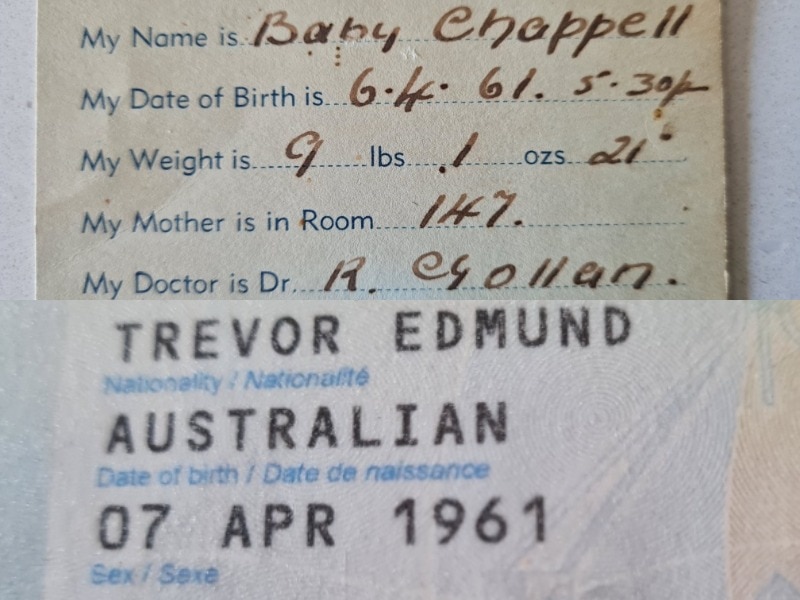 My Name is Baby Chappell
My Date of Birth is 6.4.61. 5.30p
My Weight is 9 lbs 1 ozs 21"
My Mother is in Room 147.
My Doctor is Dr. R. Gollan.
TREVOR EDMUND
Nationality / Nationalité
AUSTRALIAN
Date of birth / Date de naissance
07 APR 1961
Sex / Sexe